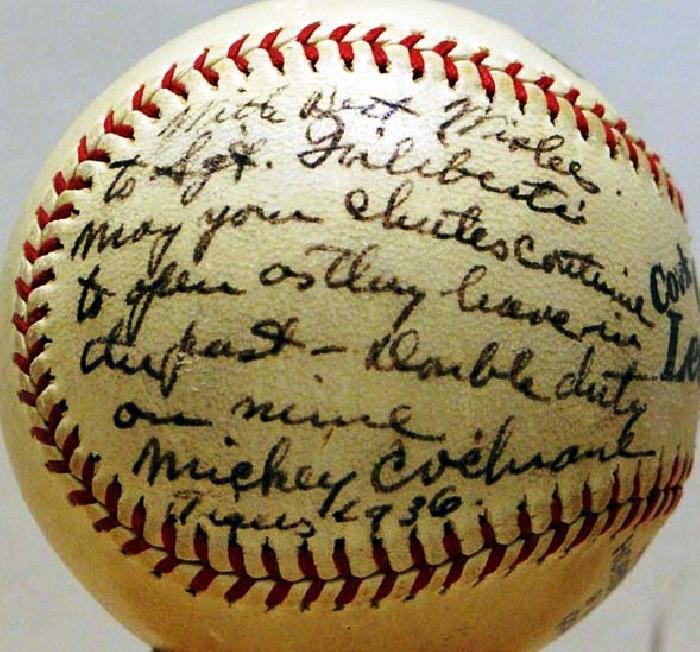 With Best Wishes.
to Sgt. Filiberti
May your Chutes continue
to open as they have in
the past - Double duty
on mine
Mickey Cochrane
Tigers 1936.